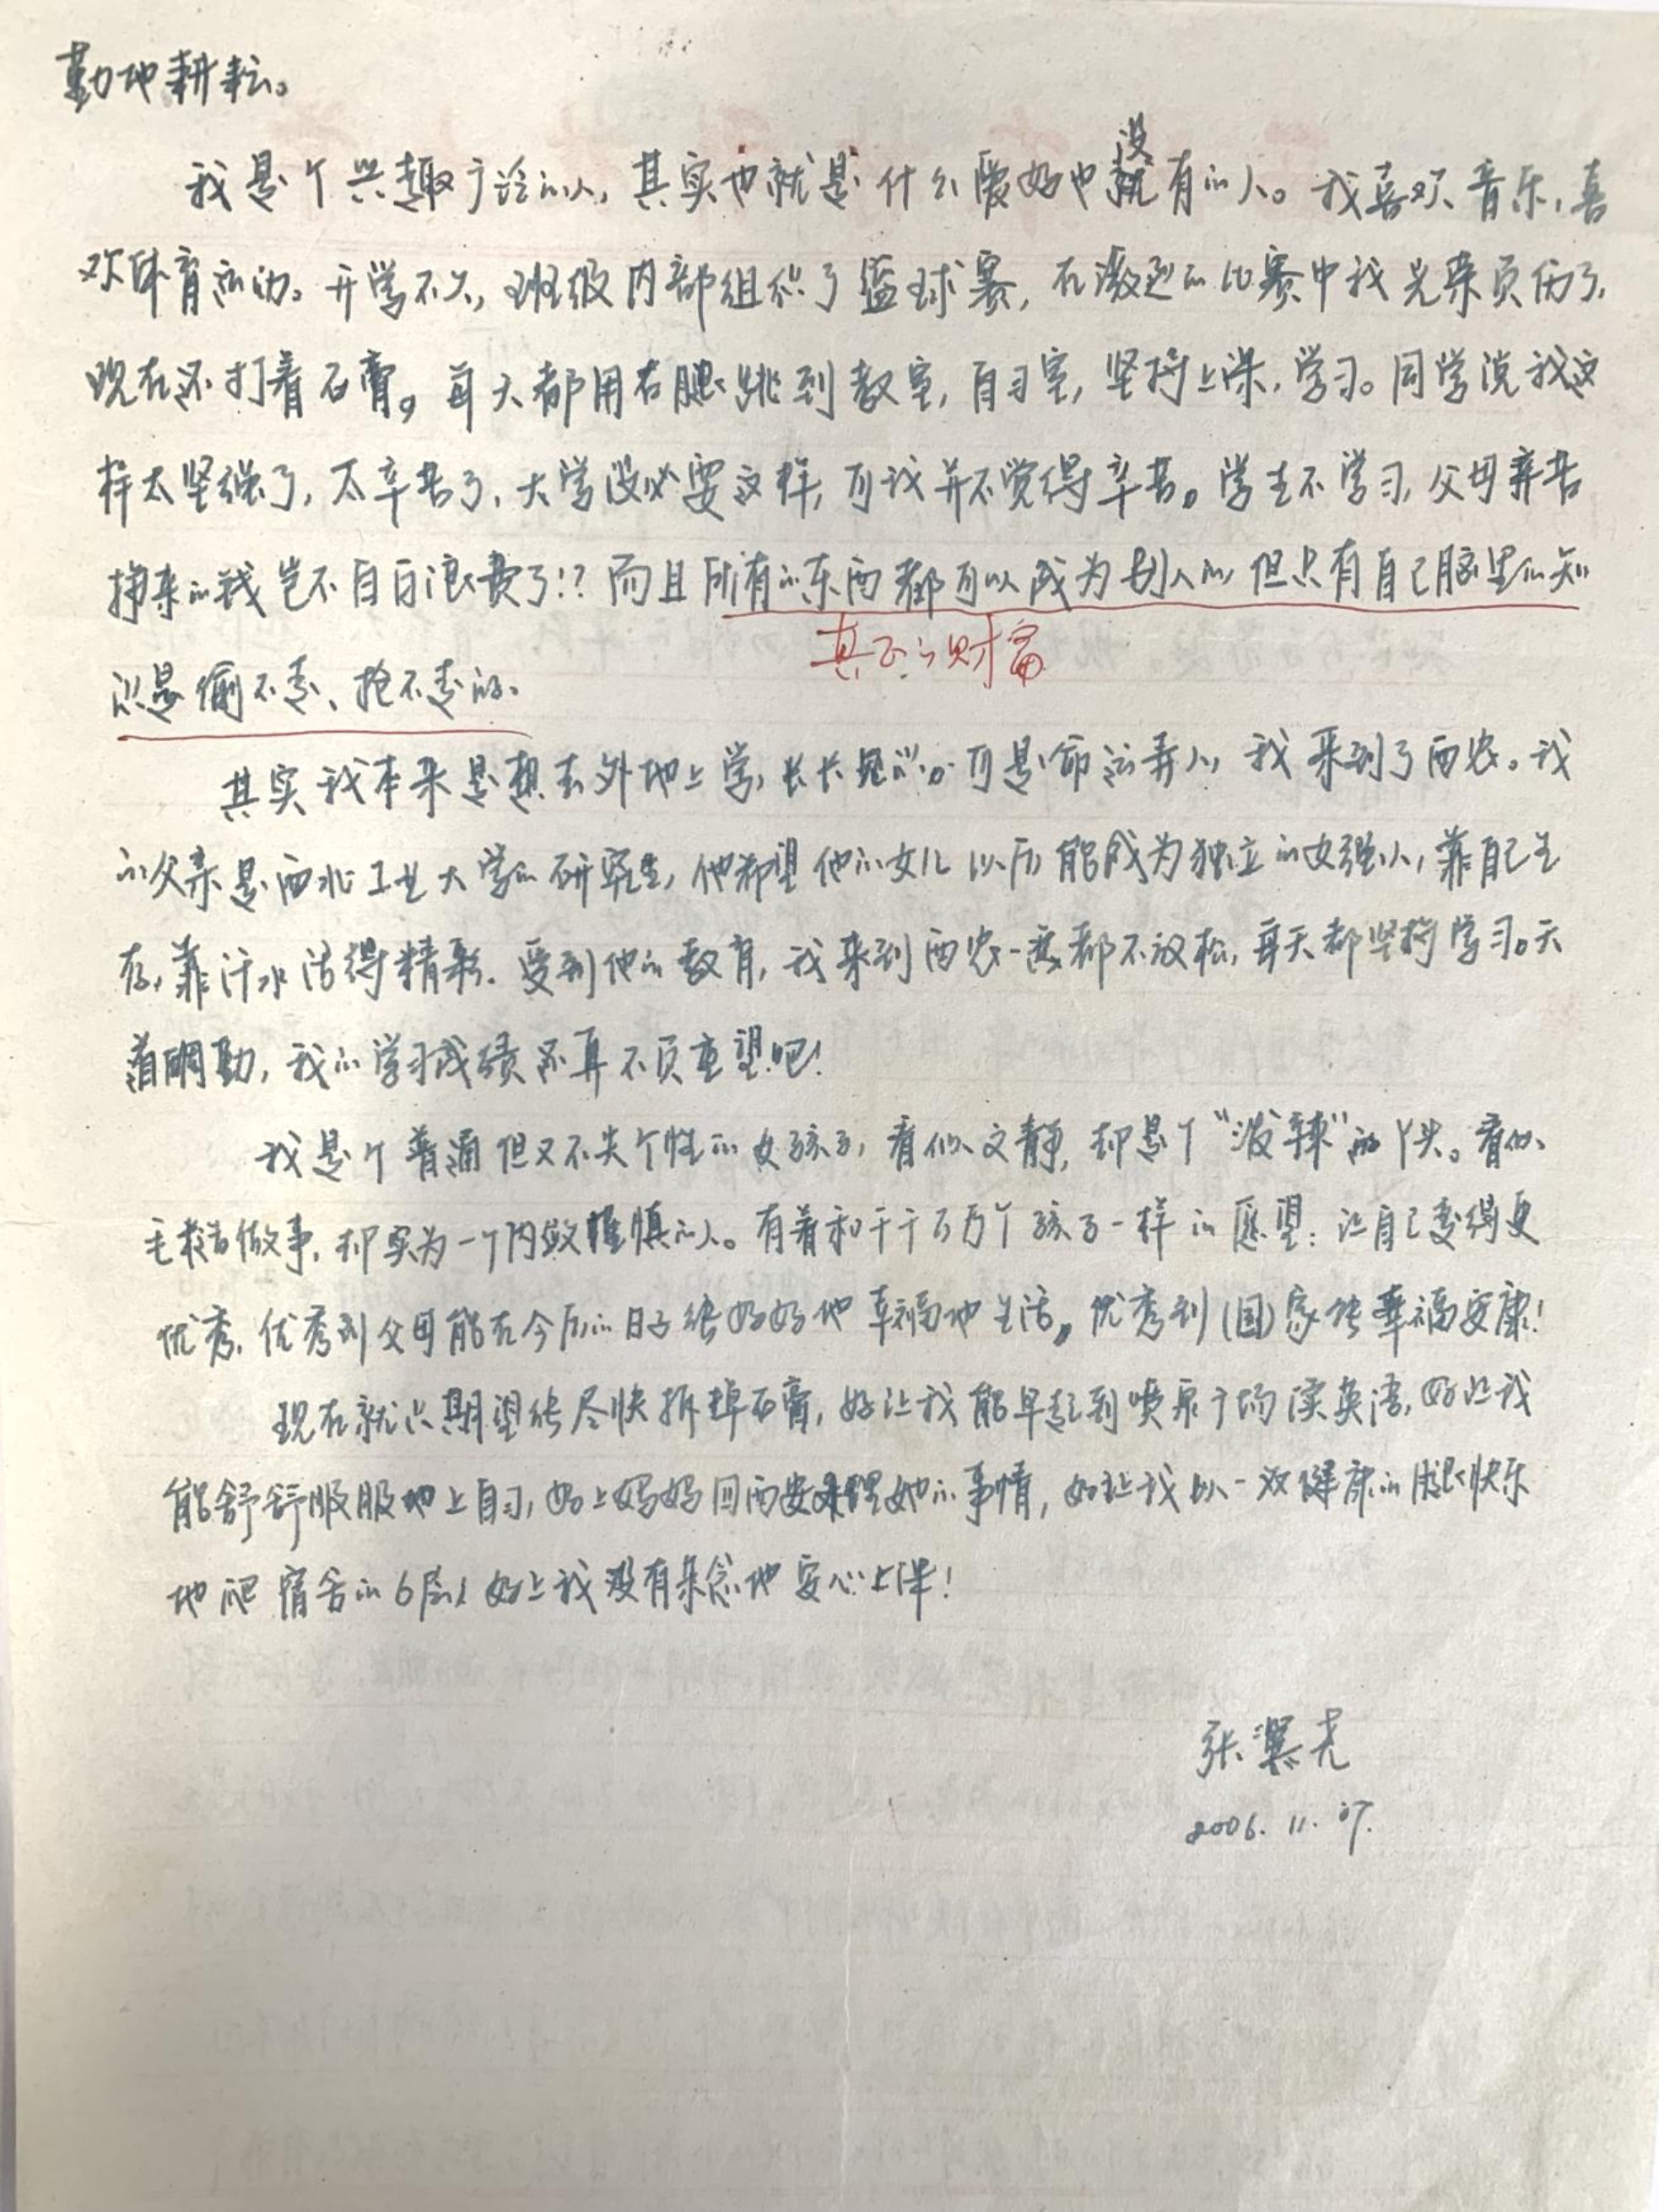 勤地耕耘。
我是个兴趣广泛的人,其实也就是什么爱好也没有的人。我喜欢音乐,喜
欢体育运动。开学不久,班级内部组织了篮球赛,在激烈的比赛中我光荣负伤了,
现在还打着石膏。每天都用右腿跳到教室,自习室,坚持上课,学习。同学说我这
样太坚强了,太辛苦了,大学没必要这样,可我并不觉得辛苦。学生不学习,父母辛苦
挣来的钱岂不白白浪费了!?而且所有的东西都可以成为别人的,但只有自己脑里的知
真正的财富
识是偷不走、抢不走的。
其实我本来是想去外地上学,长长见识。可是命运弄人,我来到了西农。我
的父亲是西北工业大学的研究生,他希望他的女儿以后能成为独立的女强人,靠自己生
存,靠汗水活得精彩。受到他的教育,我来到西农一点都不放松,每天都坚持学习。天
道酬勤,我的学习成绩不再不负重望吧!
我是个普通但又不失个性的女孩子,看似文静,却是个“泼辣”的丫头。看似
毛糙做事,却实为一个内敛谨慎的人。有着和千千万万个孩子一样的愿望:让自己变得更
优秀,优秀到父母能在今后的日子能好好地幸福地生活,优秀到(国)家能幸福安康!
现在就只期望能尽快拆掉石膏,好让我能早起到喷泉广场读英语,好让我
能舒舒服服地上自习,好让妈妈回西安处理她的事情,好让我以一双健康的腿快乐
地爬宿舍的6层,好让我没有杂念地安心上课!
张
2006. 11. 07.